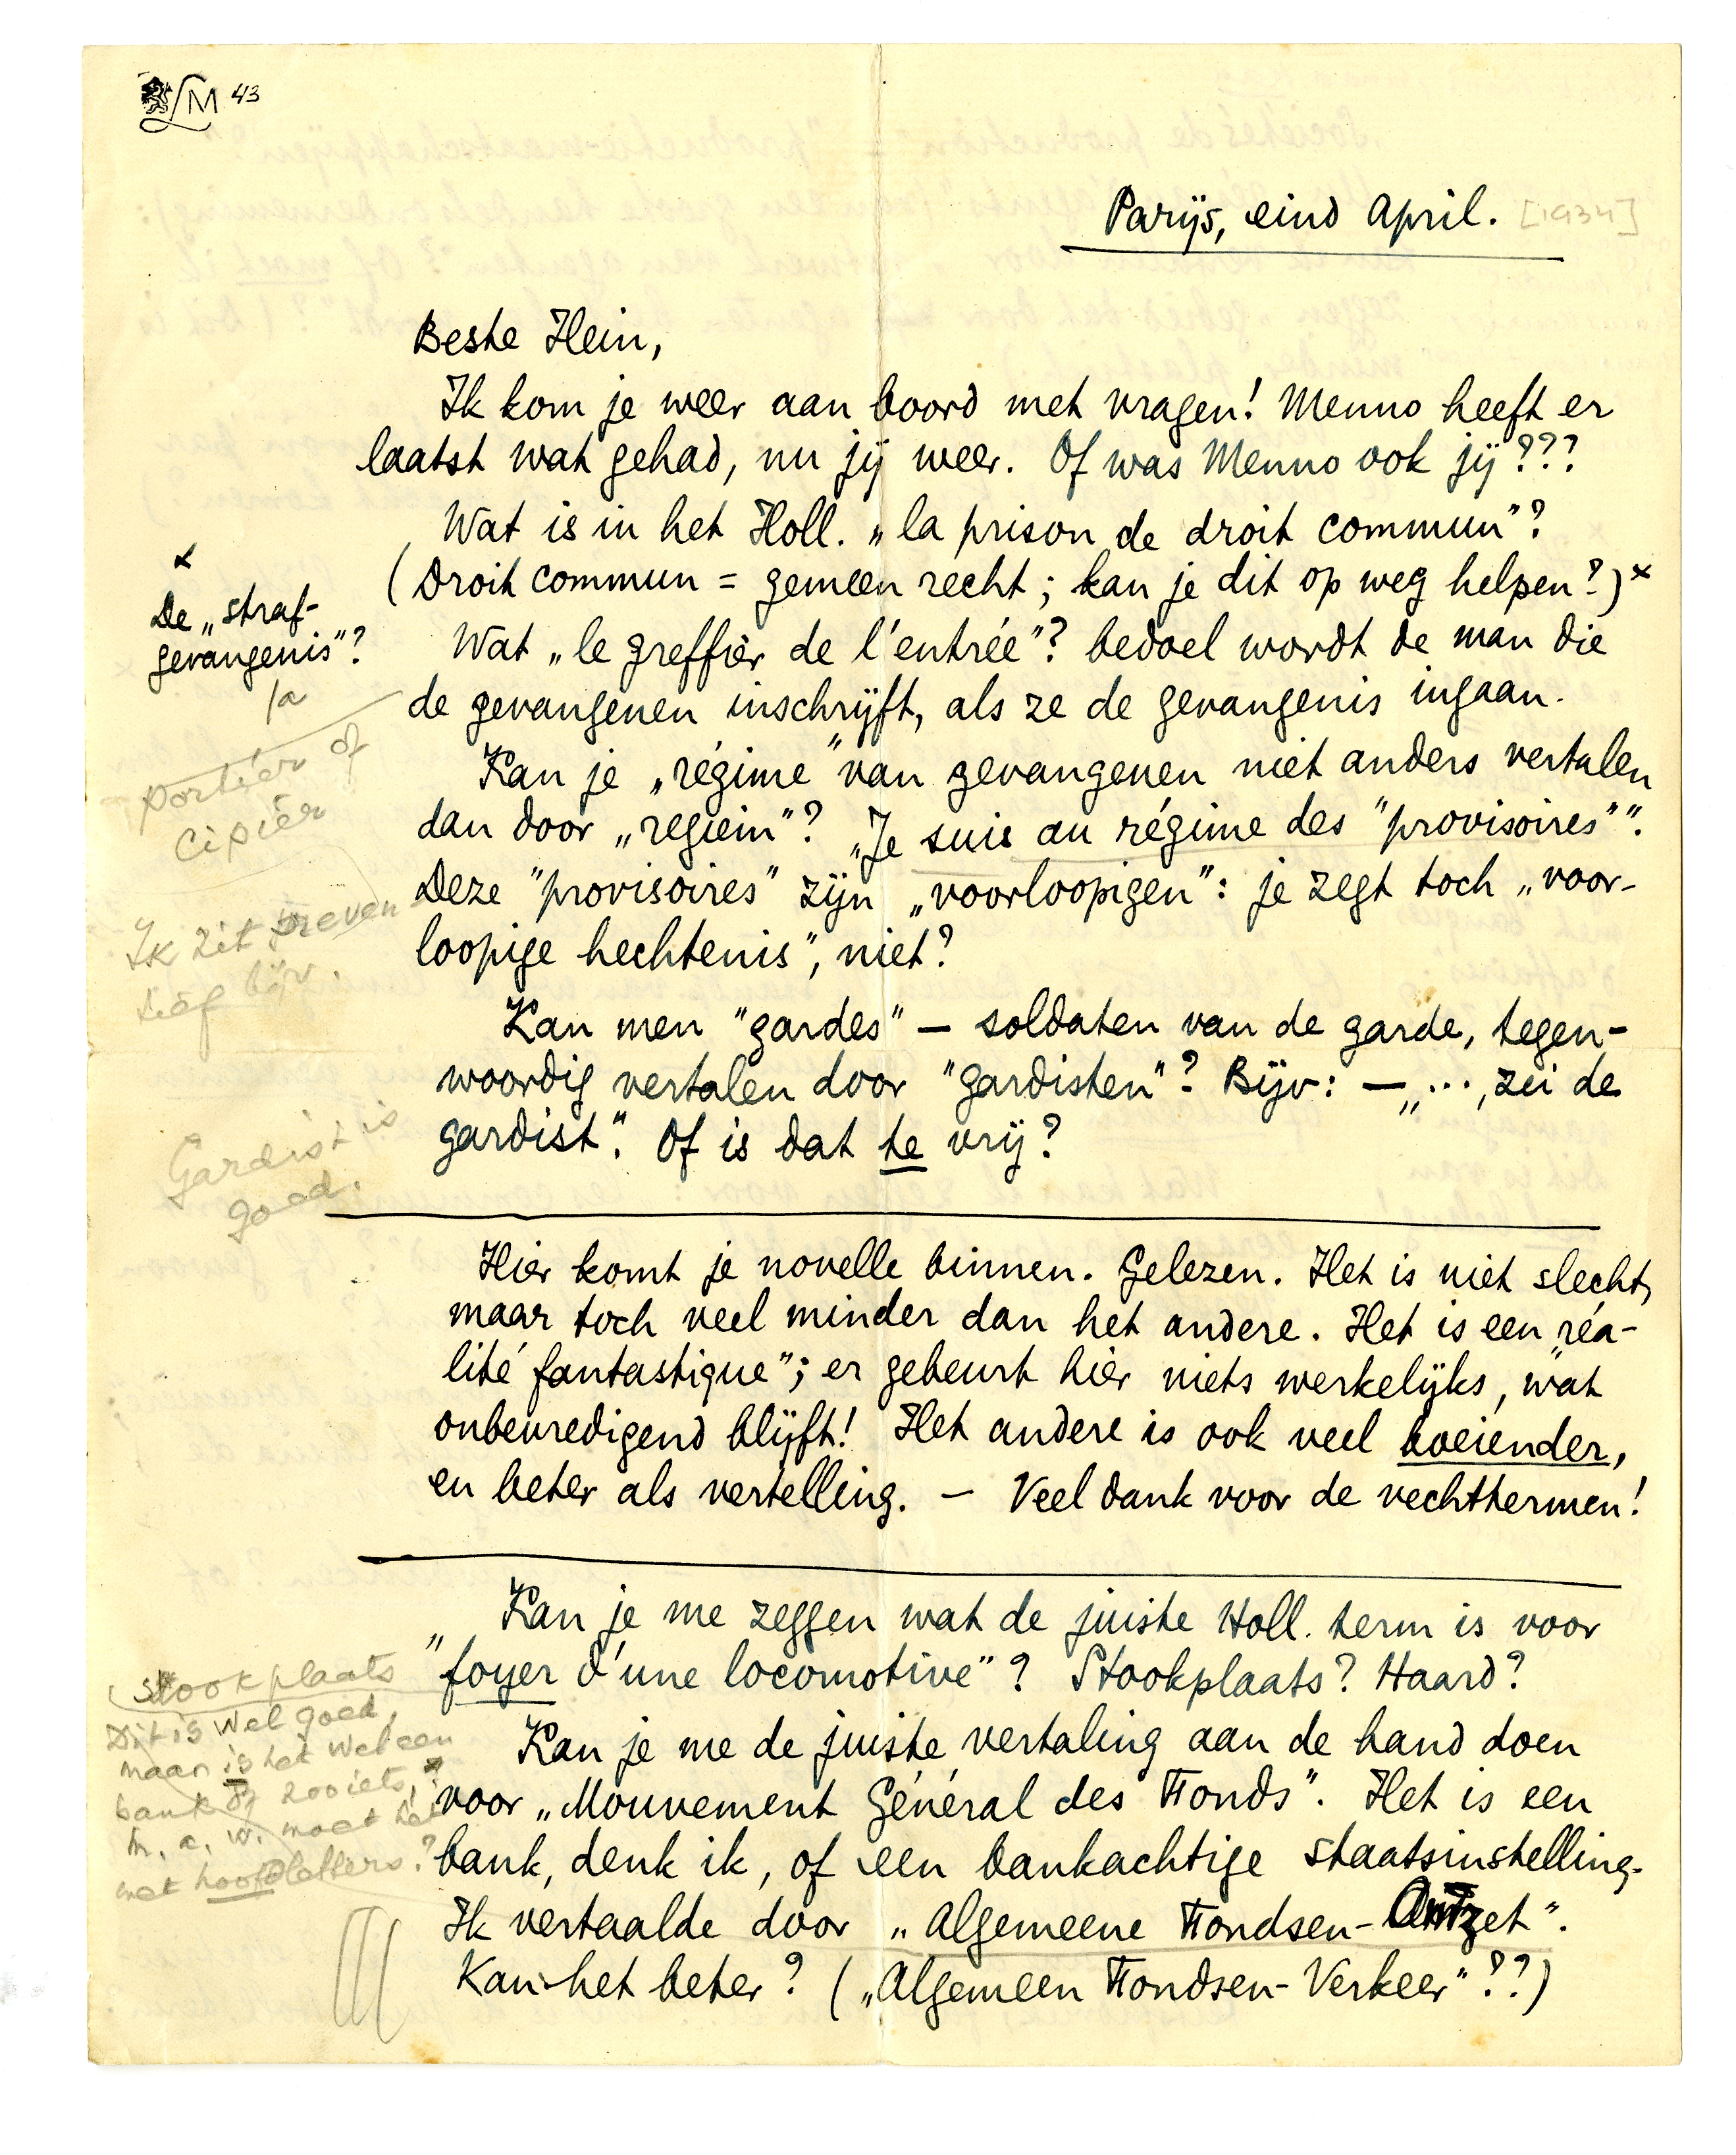 LM 43
Parijs, eind April. [1934]
Beste Hein,
Ik kom je weer aan boord met vragen! Menno heeft er
laatst wat gehad, nu jij weer. Of was Menno ook jij???
Wat is in het Holl. „la prison de droit commun"?
(Droit commun = gemeen recht; kan je dit op weg helpen?) x
x
De „straf-
gevangenis"?
Ja
Wat „le greffier de l'entrée"? bedoel wordt de man die
de gevangenen inschrijft, als ze de gevangenis ingaan.
portier of
cipier
Kan je „régime" van gevangenen niet anders vertalen
dan door „regiem"? „Je suis au régime des "provisoires"".
Deze "provisoires" zijn „voorloopigen": je zegt toch „voor-
loopige hechtenis", niet?
Ik zit preven
tief bijv.
Kan men "gardes" — soldaten van de garde, tegen-
woordig vertalen door "gardisten"? Bijv: — „..., zei de
gardist". Of is dat te vrij?
Gardist is
goed.
Hier komt je novelle binnen. Gelezen. Het is niet slecht,
maar toch veel minder dan het andere. Het is een „réa-
lité fantastique"; er gebeurt hier niets werkelijks, wat
onbevredigend blijft! Het andere is ook veel boeiender,
en beter als vertelling. — Veel dank voor de vechttermen!
Kan je me zeggen wat de juiste Holl. term is voor
„foyer d'une locomotive"? Stookplaats? Haard?
stookplaats
Kan je me de juiste vertaling aan de hand doen
voor „Mouvement Général des Fonds". Het is een
bank, denk ik, of een bankachtige staatsinstelling.
Ik vertaalde door „Algemeene Fondsen-Omzet".
Kan het beter? („Algemeen Fondsen-Verkeer"??)
Dit is wel goed,
maar is het wel een
bank of zooiets,
m. a. w. moet het
met hoofdletters?